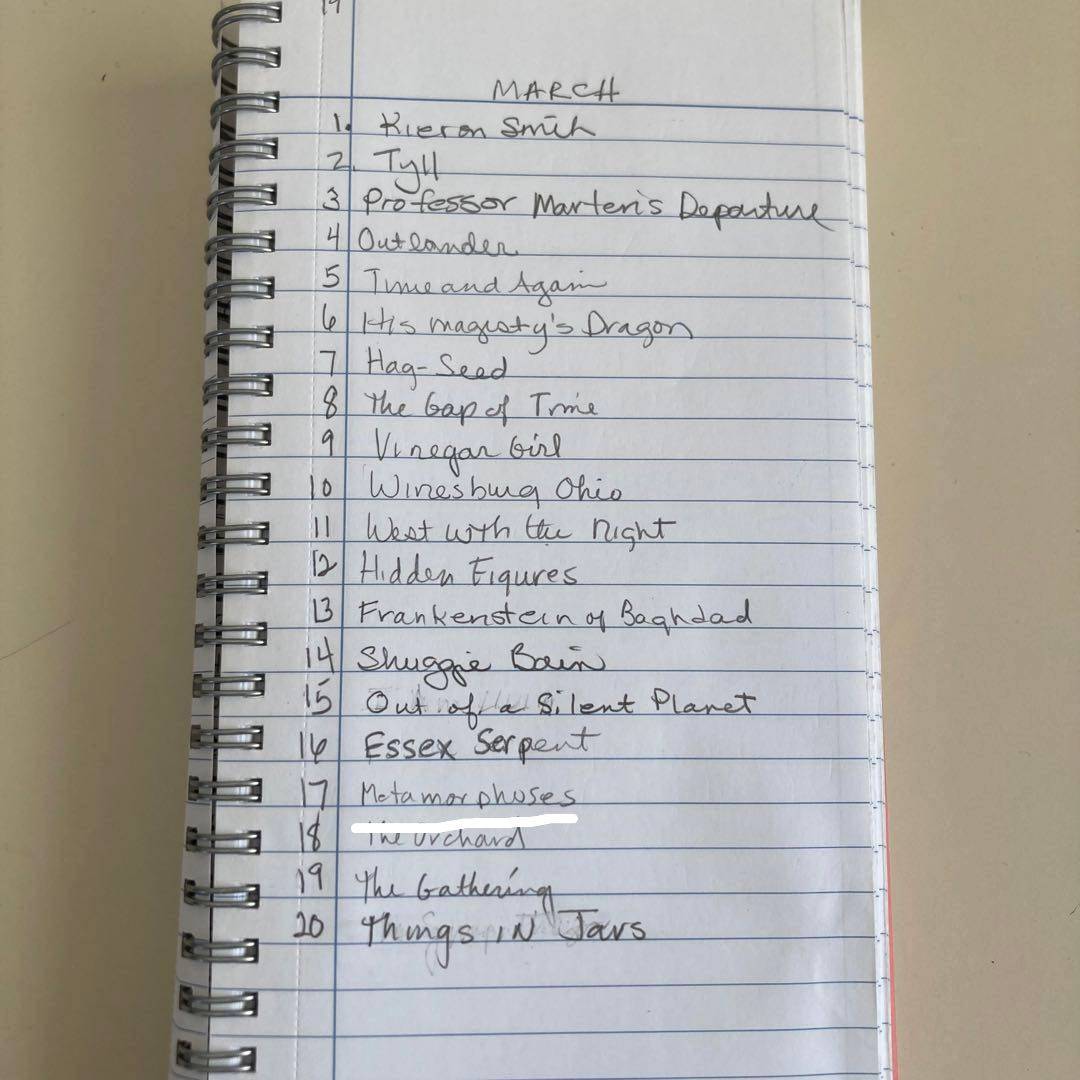 19
MARCH
1. Kieron Smith
2. Tyll
3 Professor Marten's Departure
4 Outlander
5 Time and Again
6 His magisty's Dragon
7 Hag-Seed
8 The Gap of Time
9 Vinegar Girl
10 Winesburg Ohio
11 West with the Night
12 Hidden Figures
13 Frankenstein of Baghdad
14 Shuggie Bain
15 Out of a Silent Planet
16 Essex Serpent
17 Metamorphoses
18 The Orchard
19 The Gathering
20 Things IN Jars